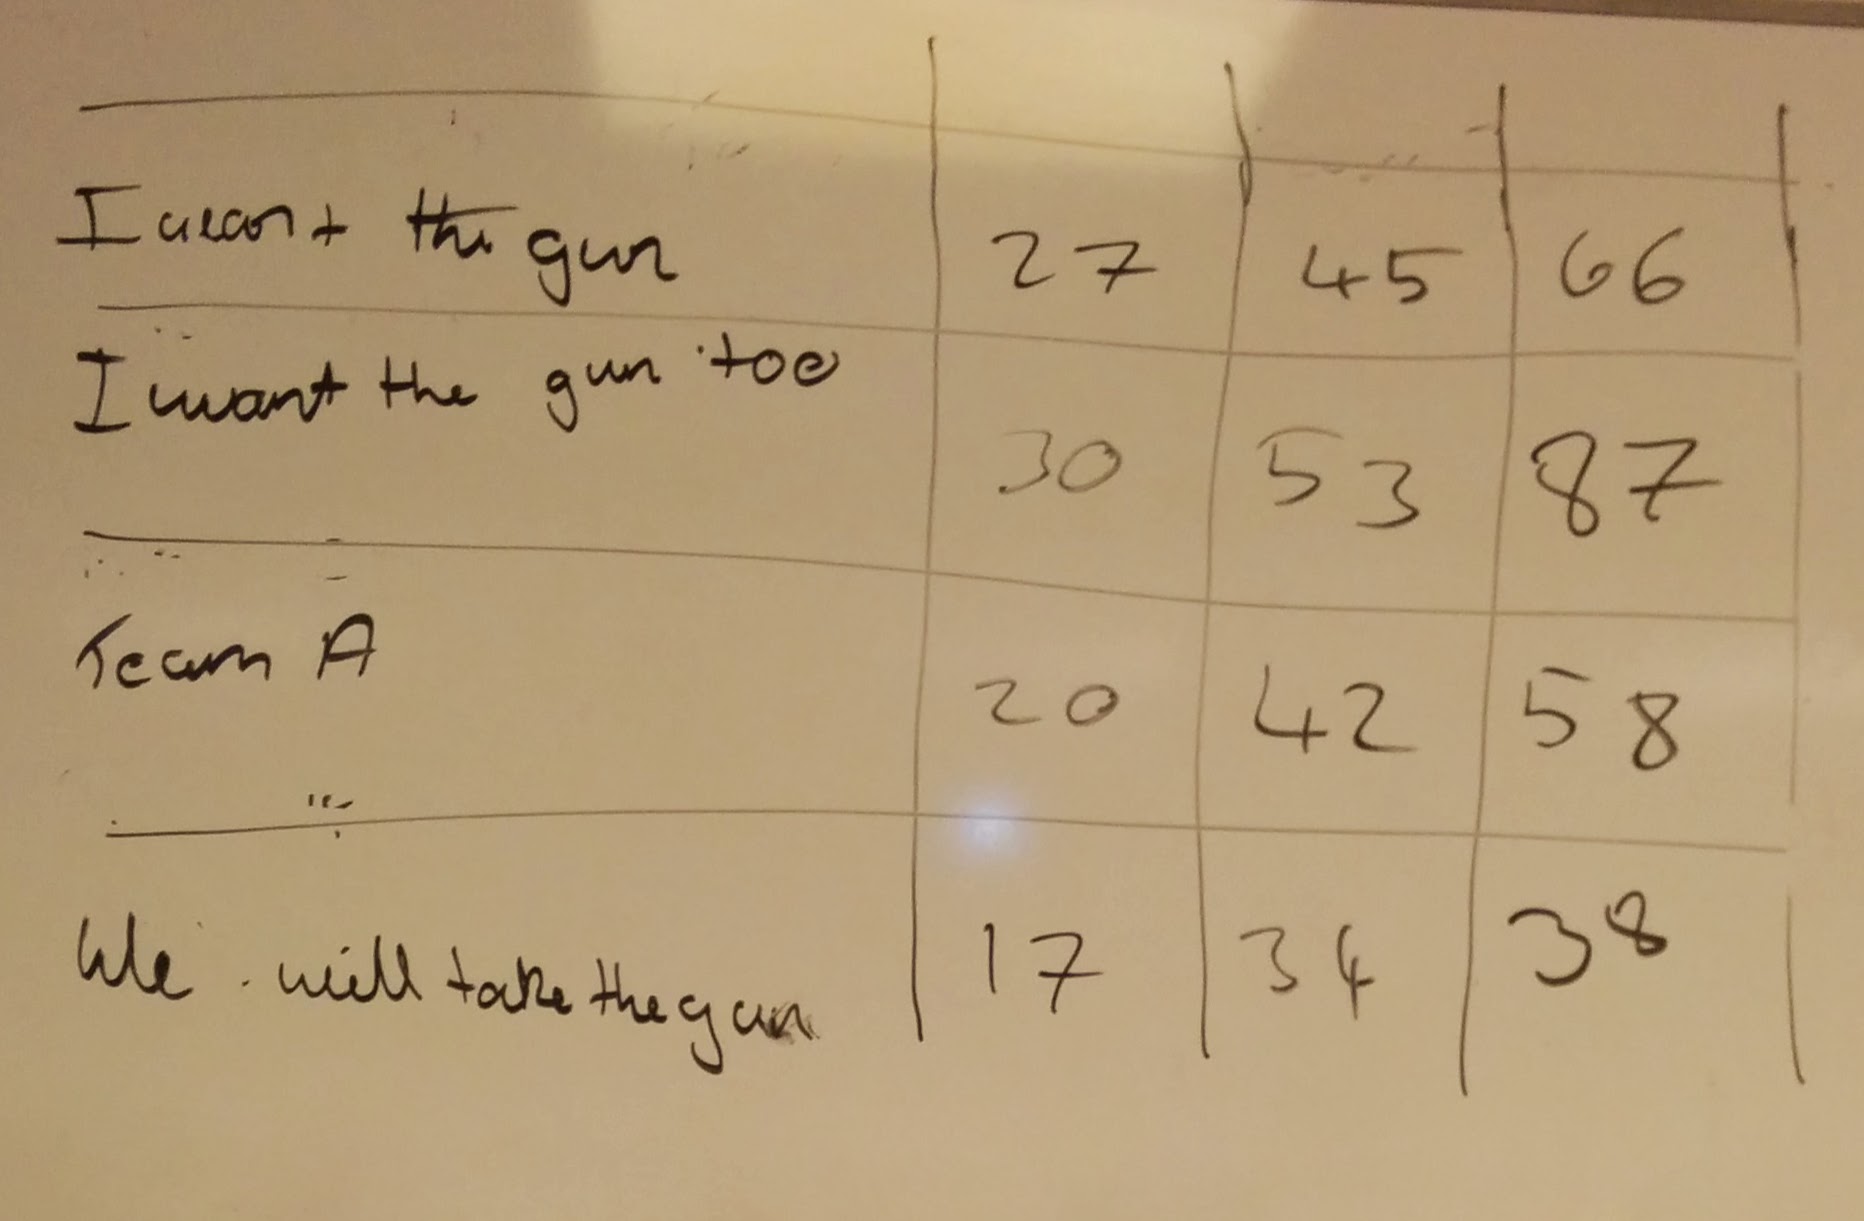 I want the gun 27 45 66
I want the gun too 30 53 87
Team A 20 42 58
We will take the gun 17 34 38